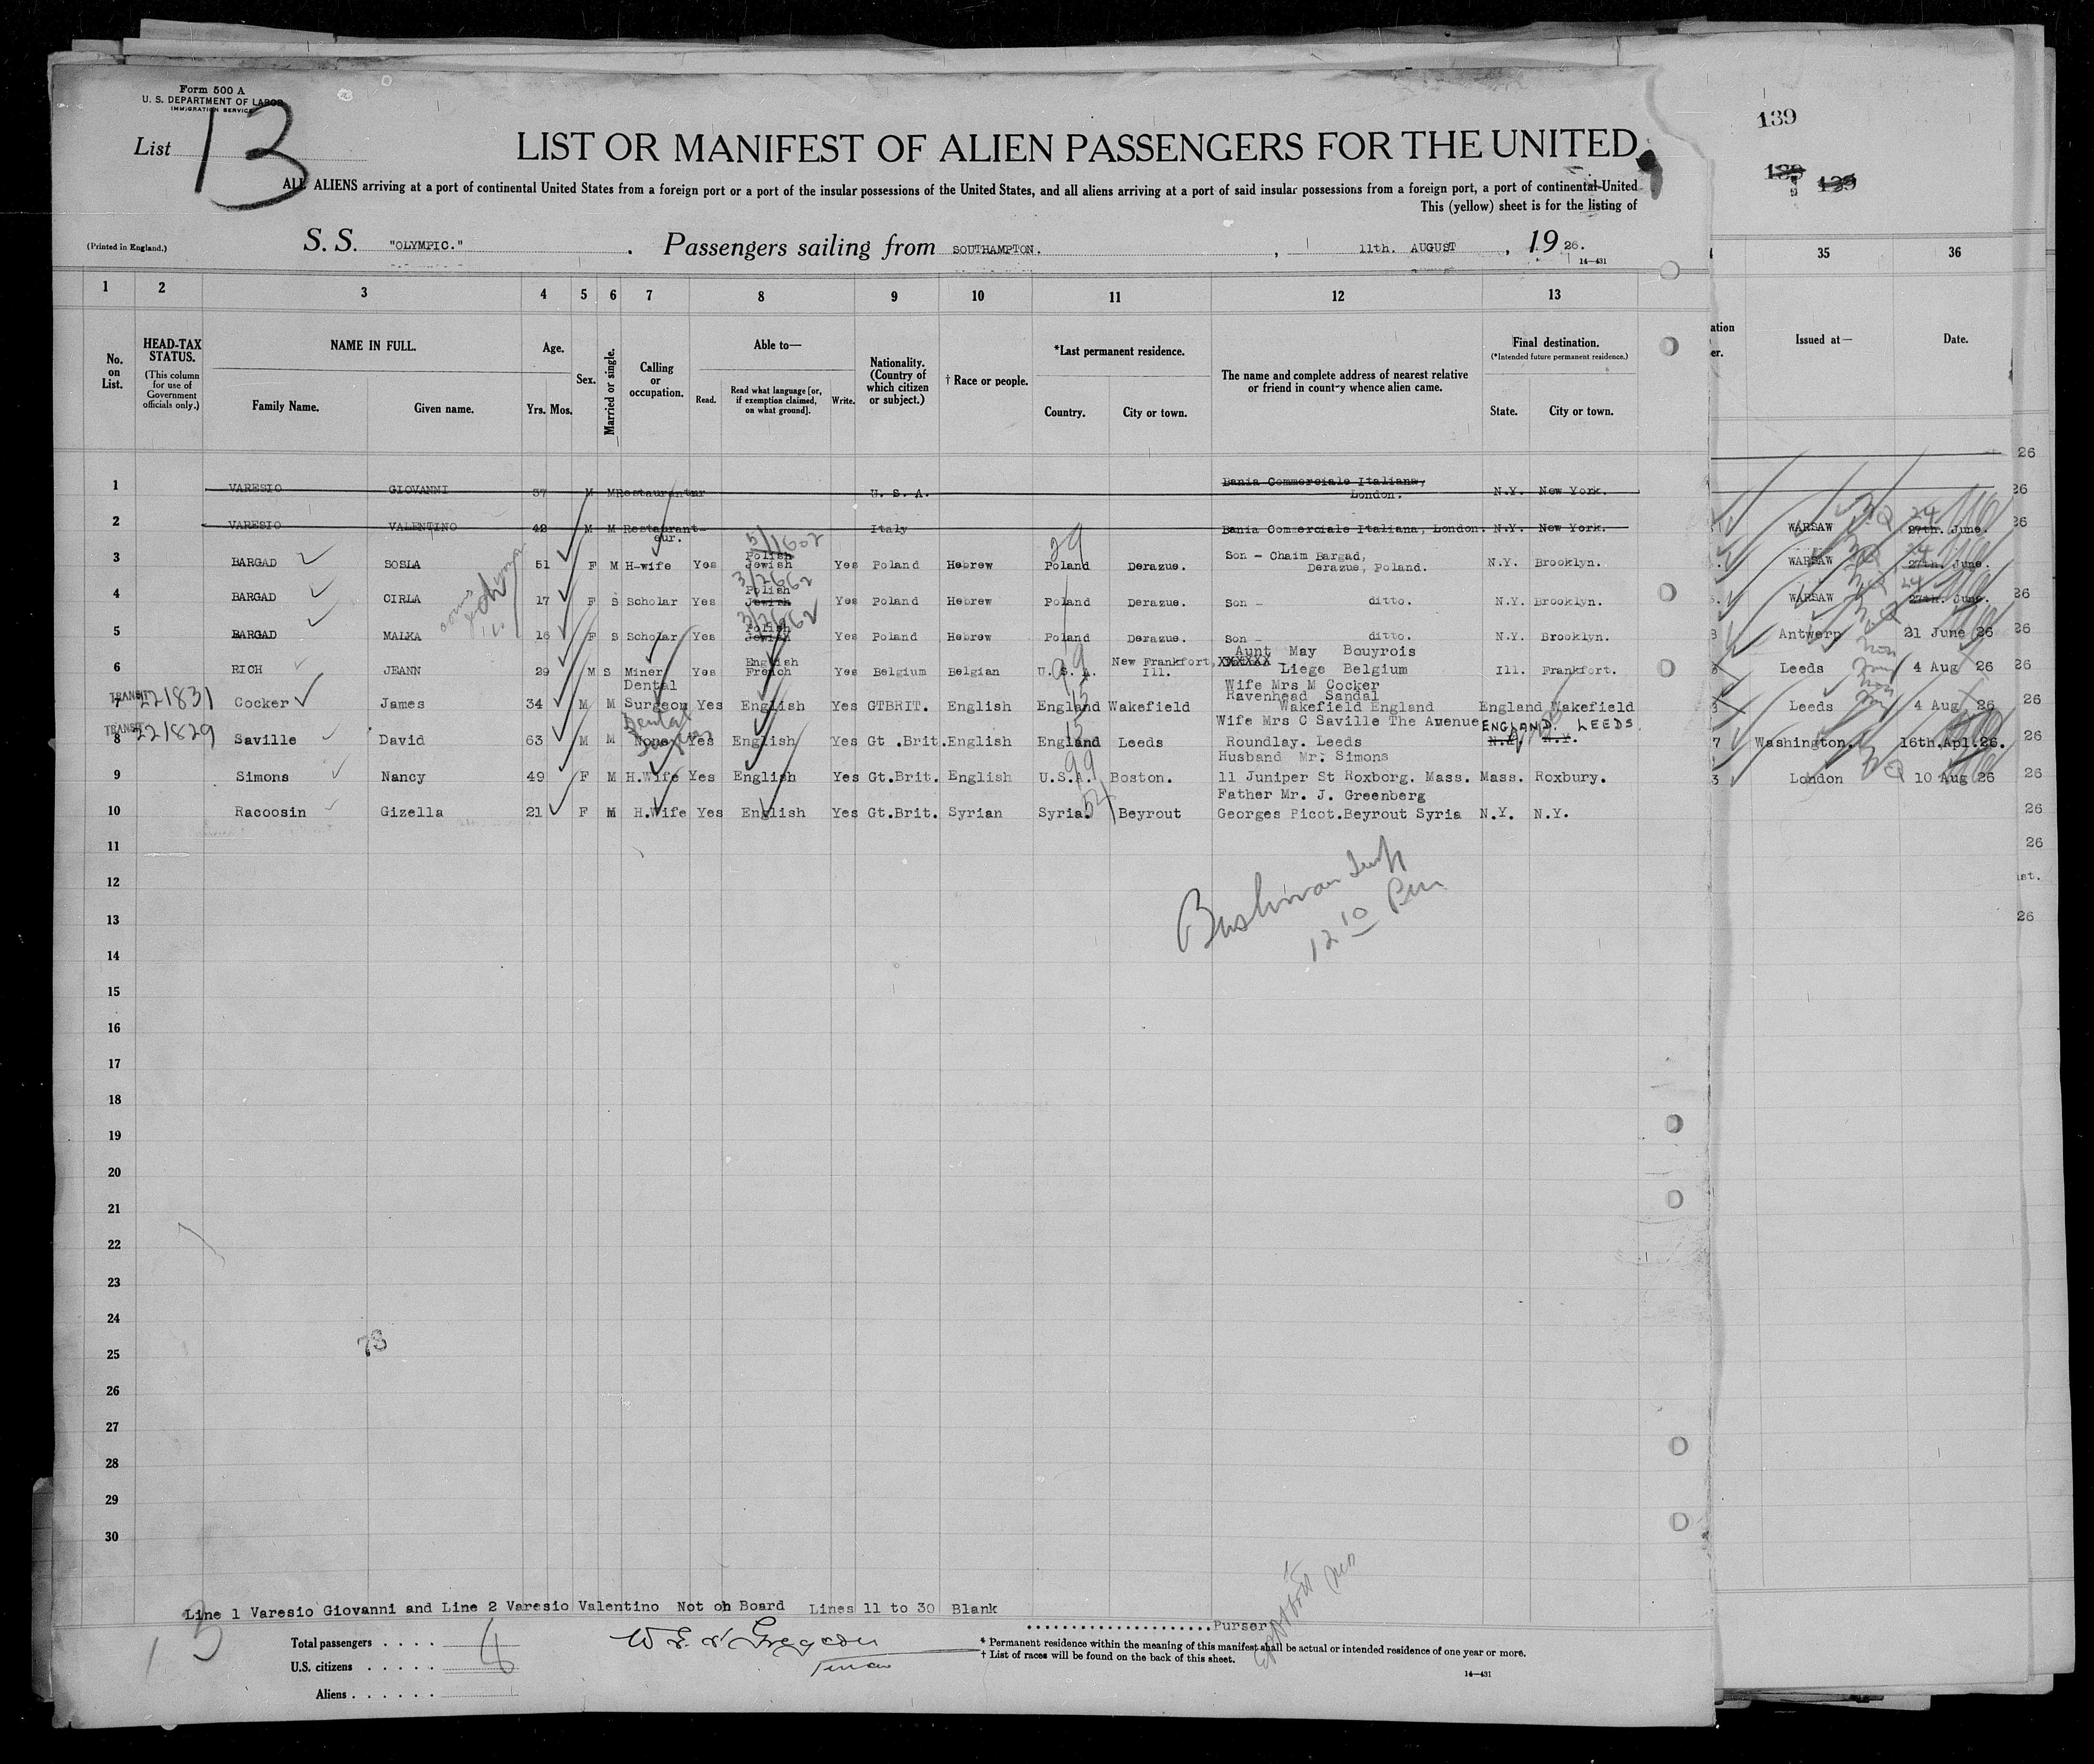 Form 500 A
U. S. DEPARTMENT OF LABOR
IMMIGRATION SERVICE
List 13
LIST OR MANIFEST OF ALIEN PASSENGERS FOR THE UNITED
ALL ALIENS arriving at a port of continental United States from a foreign port or a port of the insular possessions of the United States, and all aliens arriving at a port of said insular possessions from a foreign port, a port of continental United
This (yellow) sheet is for the listing of
(Printed in England.) S. S. "OLYMPIC." Passengers sailing from SOUTHAMPTON. , 11th. AUGUST , 19 26.
14—431
139
1 2 3 4 5 6 7 8 9 10 11 12 13 35 36
No. on List.
HEAD-TAX STATUS.
(This column for use of Government officials only.)
NAME IN FULL.
Family Name. Given name.
Age.
Yrs. Mos.
Sex.
Married or single.
Calling or occupation.
Able to—
Read. Read what language [or, if exemption claimed, on what ground]. Write.
Nationality. (Country of which citizen or subject.)
† Race or people.
*Last permanent residence.
Country. City or town.
The name and complete address of nearest relative or friend in country whence alien came.
Final destination.
(*Intended future permanent residence.)
State. City or town.
Issued at— Date.
1 VARESIO GIOVANNI 37 M M Restauranteur U. S. A. Bania Commerciale Italiana, London. N.Y. New York.
2 VARESIO VALENTINO 42 M M Restaurant-eur. Italy Bania Comerciale Italiana, London. N.Y. New York.
3 BARGAD SOSLA 51 F M H-wife Yes Polish Jewish Yes Poland Hebrew Poland Derazue. Son - Chaim Bargad, Derazue, Poland. N.Y. Brooklyn.
4 BARGAD CIRLA 17 F S Scholar Yes Polish Jewish Yes Poland Hebrew Poland Derazue. Son - ditto. N.Y. Brooklyn.
5 BARGAD MALKA 16 F S Scholar Yes Polish Jewish Yes Poland Hebrew Poland Derazue. Son - ditto. N.Y. Brooklyn.
6 RICH JEANN 29 M S Miner Yes English French Yes Belgium Belgian U. S. A. New Frankfort, Ill. Aunt May Bouyrois XXXXXX Liege Belgium Ill. Frankfort.
TRANSIT 7 221831 Cocker James 34 M M Dental Surgeon Yes English Yes GTBRIT. English England Wakefield Wife Mrs M Cocker Ravenhead Sandal Wakefield England England Wakefield
TRANSIT 8 221829 Saville David 63 M M None Dental Surgeon Yes English Yes Gt .Brit. English England Leeds Wife Mrs C Saville The Awenue Roundlay. Leeds N.Y. N.Y. ENGLAND. LEEDS.
9 Simons Nancy 49 F M H.Wife Yes English Yes Gt.Brit. English U.S.A. Boston. Husband Mr. Simons 11 Juniper St Roxborg. Mass. Mass. Roxbury.
10 Racoosin Gizella 21 F M H.Wife Yes English Yes Gt.Brit. Syrian Syria. Beyrout Father Mr. J. Greenberg Georges Picot.Beyrout Syria N.Y. N.Y.
WARSAW 27th. June. 24
WARSAW 27th. June. 24
WARSAW 27th. June. 24
Antwerp 21 June 26
Leeds 4 Aug 26
Leeds 4 Aug 26
Washington. 16th.Apl.26.
London 10 Aug 26
11
12
13
14
15
16
17
18
19
20
21
22
23
24
25
26
27
28
29
30
12 10 Pm
Line 1 Varesio Giovanni and Line 2 Varesio Valentino Not on Board Lines 11 to 30 Blank
Purser
Total passengers
U.S. citizens
Aliens
* Permanent residence within the meaning of this manifest shall be actual or intended residence of one year or more.
† List of races will be found on the back of this sheet.
14—431